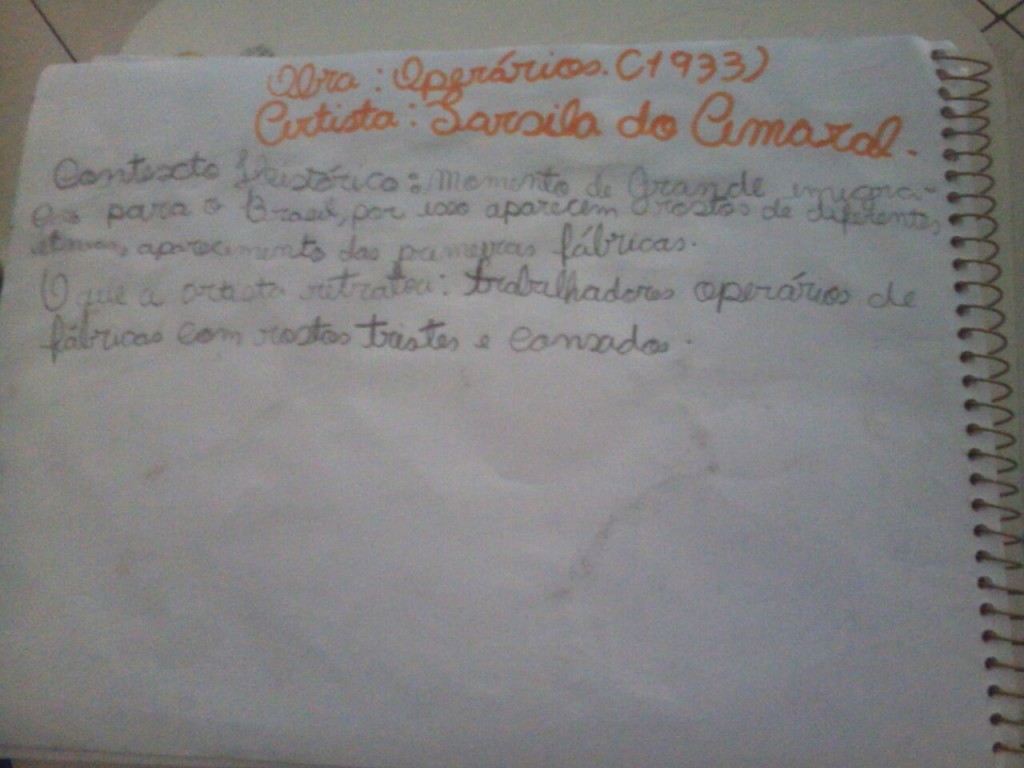 Obra: Operários. (1933)
Artista: Tarsila do Amaral.
Contexto histórico: momento de grande imigra-
ção para o Brasil, por isso aparecem rostos de diferentes
etnias, aparecimento das primeiras fábricas.
O que a artista retratou: trabalhadores operários de
fábricas com rostos tristes e cansados.